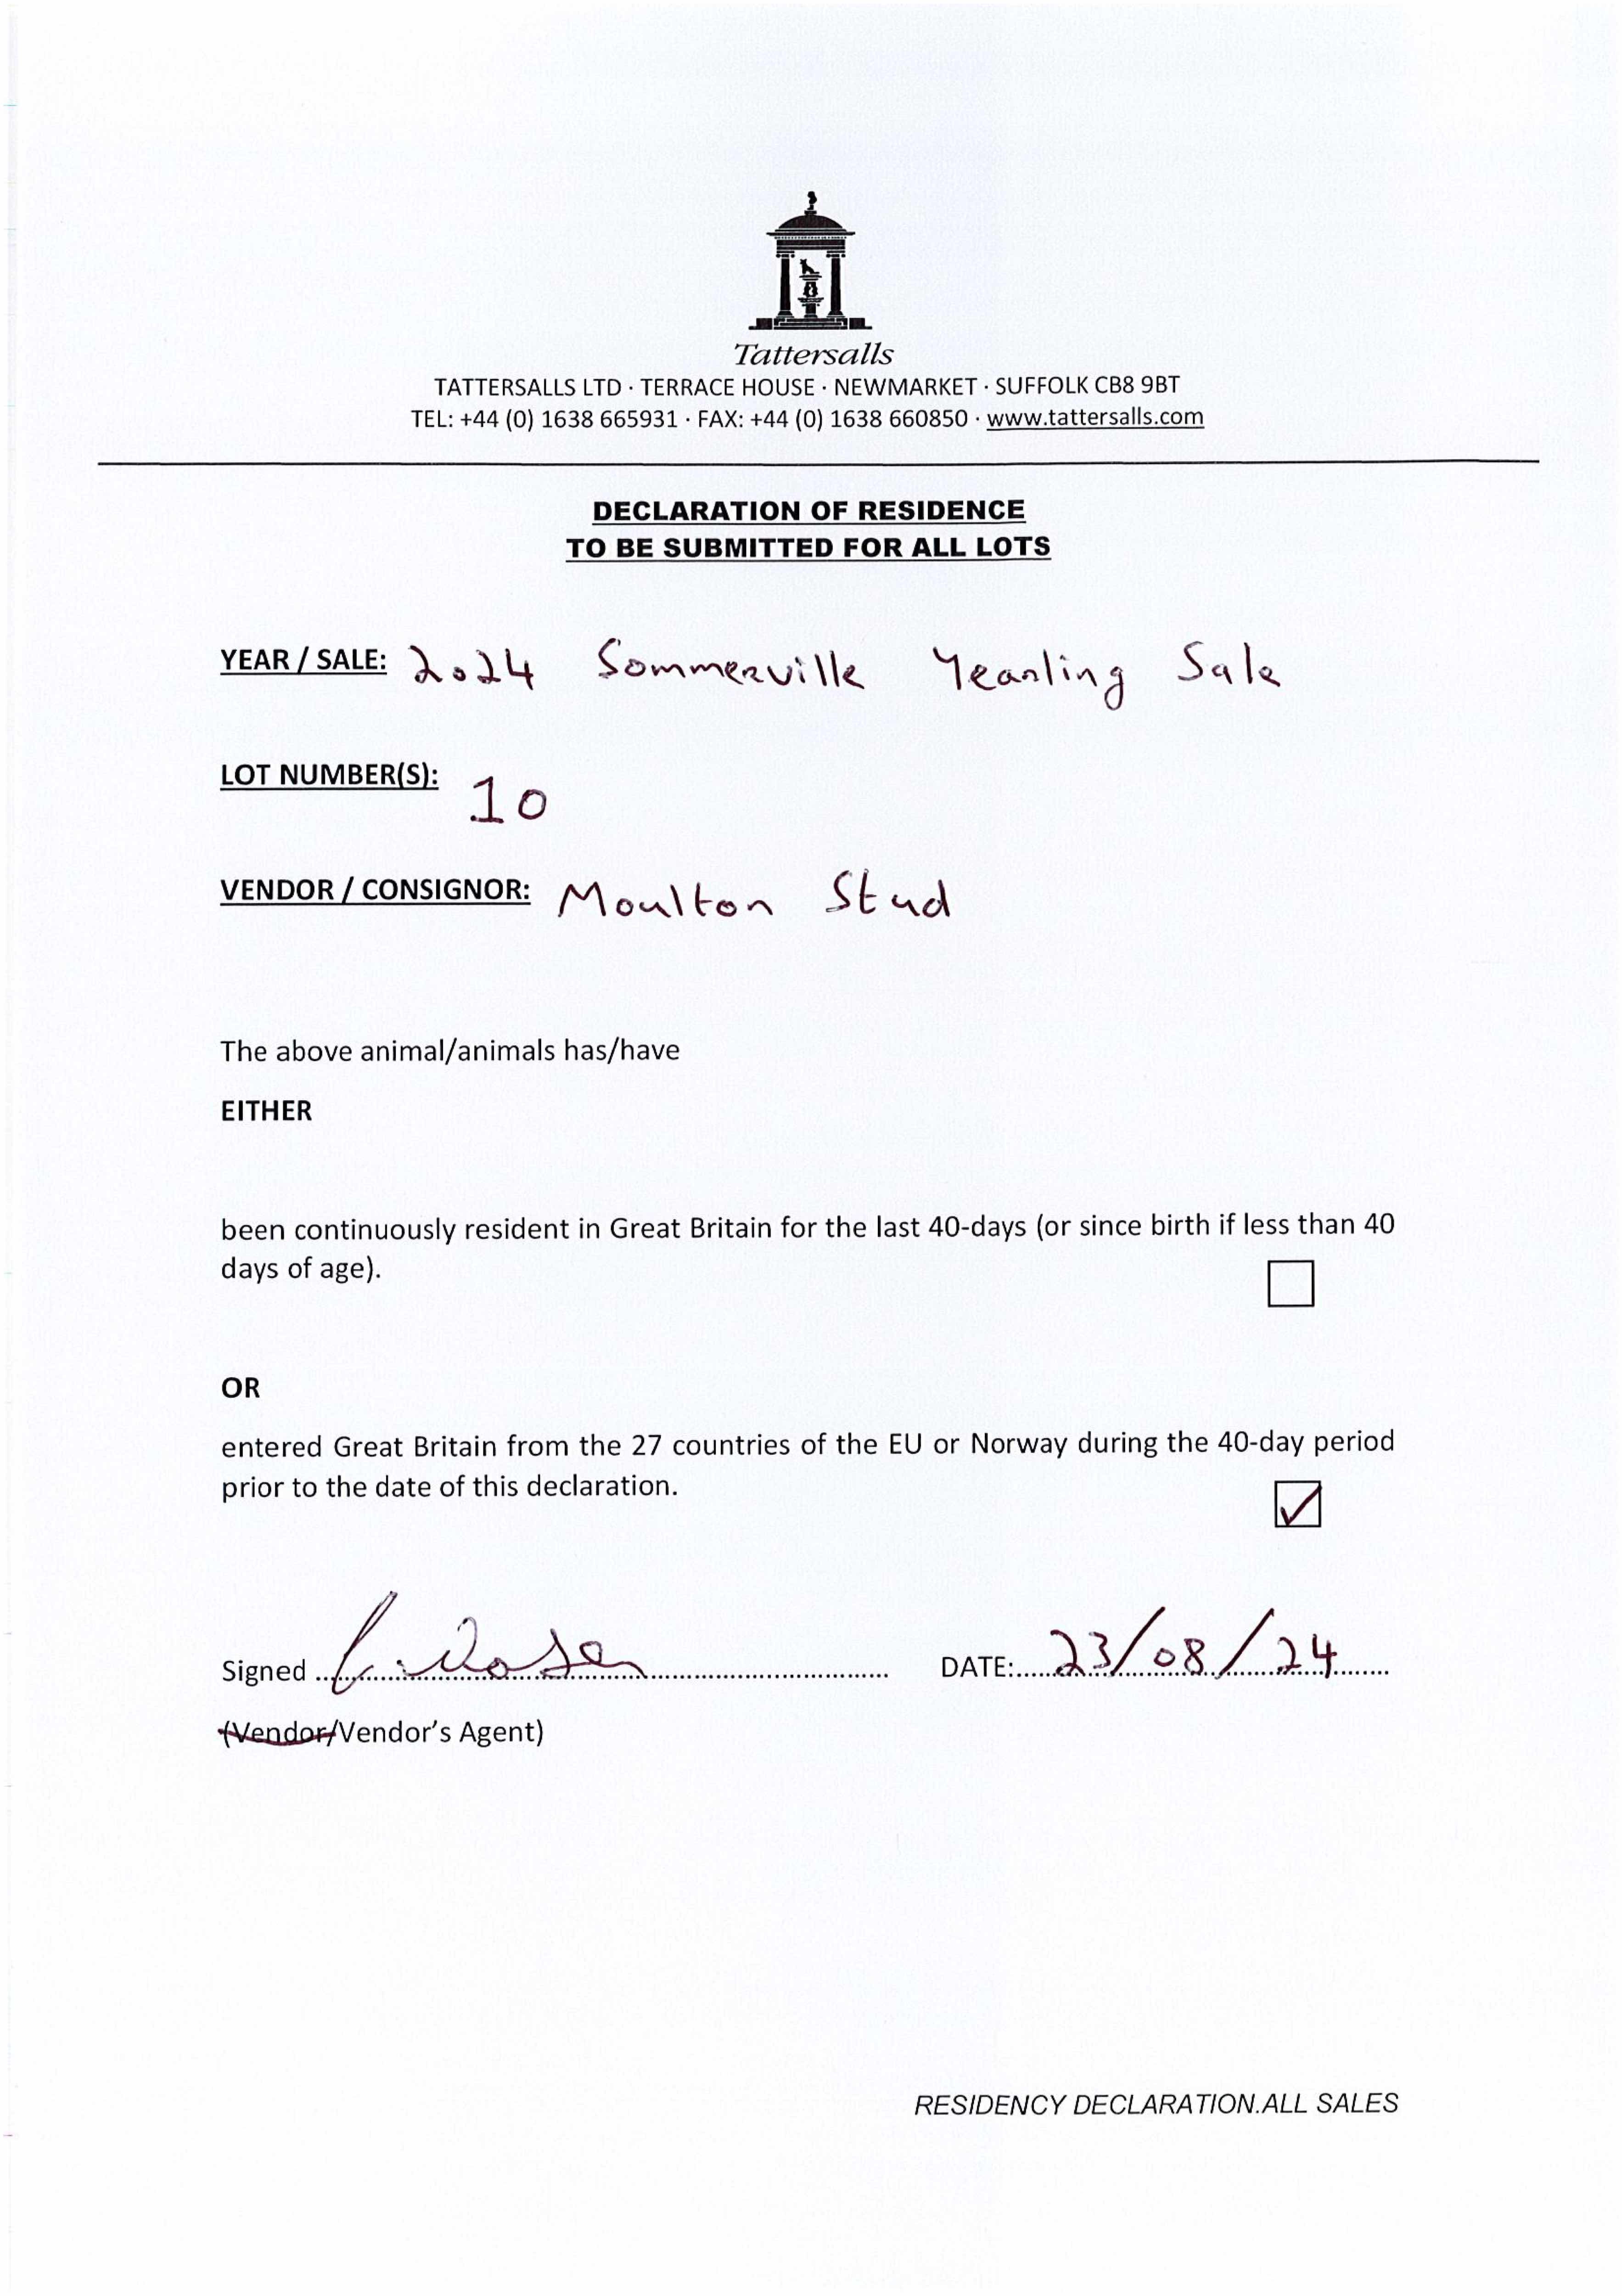 Tattersalls
TATTERSALLS LTD · TERRACE HOUSE · NEWMARKET · SUFFOLK CB8 9BT
TEL: +44 (0) 1638 665931 · FAX: +44 (0) 1638 660850 · www.tattersalls.com
DECLARATION OF RESIDENCE
TO BE SUBMITTED FOR ALL LOTS
YEAR / SALE: 2024 Sommerville Yearling Sale
LOT NUMBER(S): 10
VENDOR / CONSIGNOR: Moulton Stud
The above animal/animals has/have
EITHER
been continuously resident in Great Britain for the last 40-days (or since birth if less than 40
days of age).
OR
entered Great Britain from the 27 countries of the EU or Norway during the 40-day period
prior to the date of this declaration.
Signed DATE: 23/08/24
(Vendor/Vendor's Agent)
RESIDENCY DECLARATION.ALL SALES